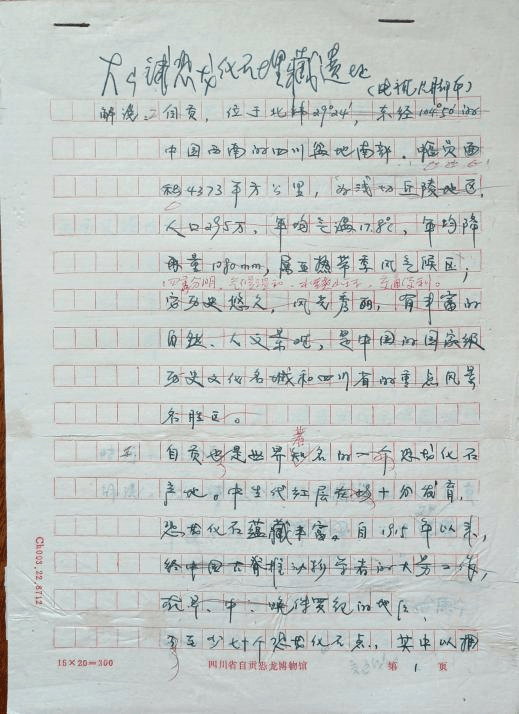 大山铺恐龙化石埋藏遗址
(电视片解说)
解说:自贡,位于北纬29°24′,东经104°50′的
中国西南的四川盆地南部。幅员面
积4373平方公里,为浅切丘陵地区,
人口295万,年均气温17.8℃,年均降
雨量1080mm,属亚热带季风气候区;
四季分明,气候温和,
历史悠久,风光秀丽,有丰富的
自然、人文景观,是中国的国家级
历史文化名城和四川省的重点风景
名胜区。
自贡也是世界著名的一个恐龙化石
产地。中生代红层在境十分发育,
恐龙化石蕴藏丰富。自1915年以来,
经中国古脊椎动物学者的大量工作,
在早、中、晚侏罗纪的地层
至少七十个恐龙化石点,其中以
15×20=300
四川省自贡恐龙博物馆
第 1 页
Ch003.22.8712